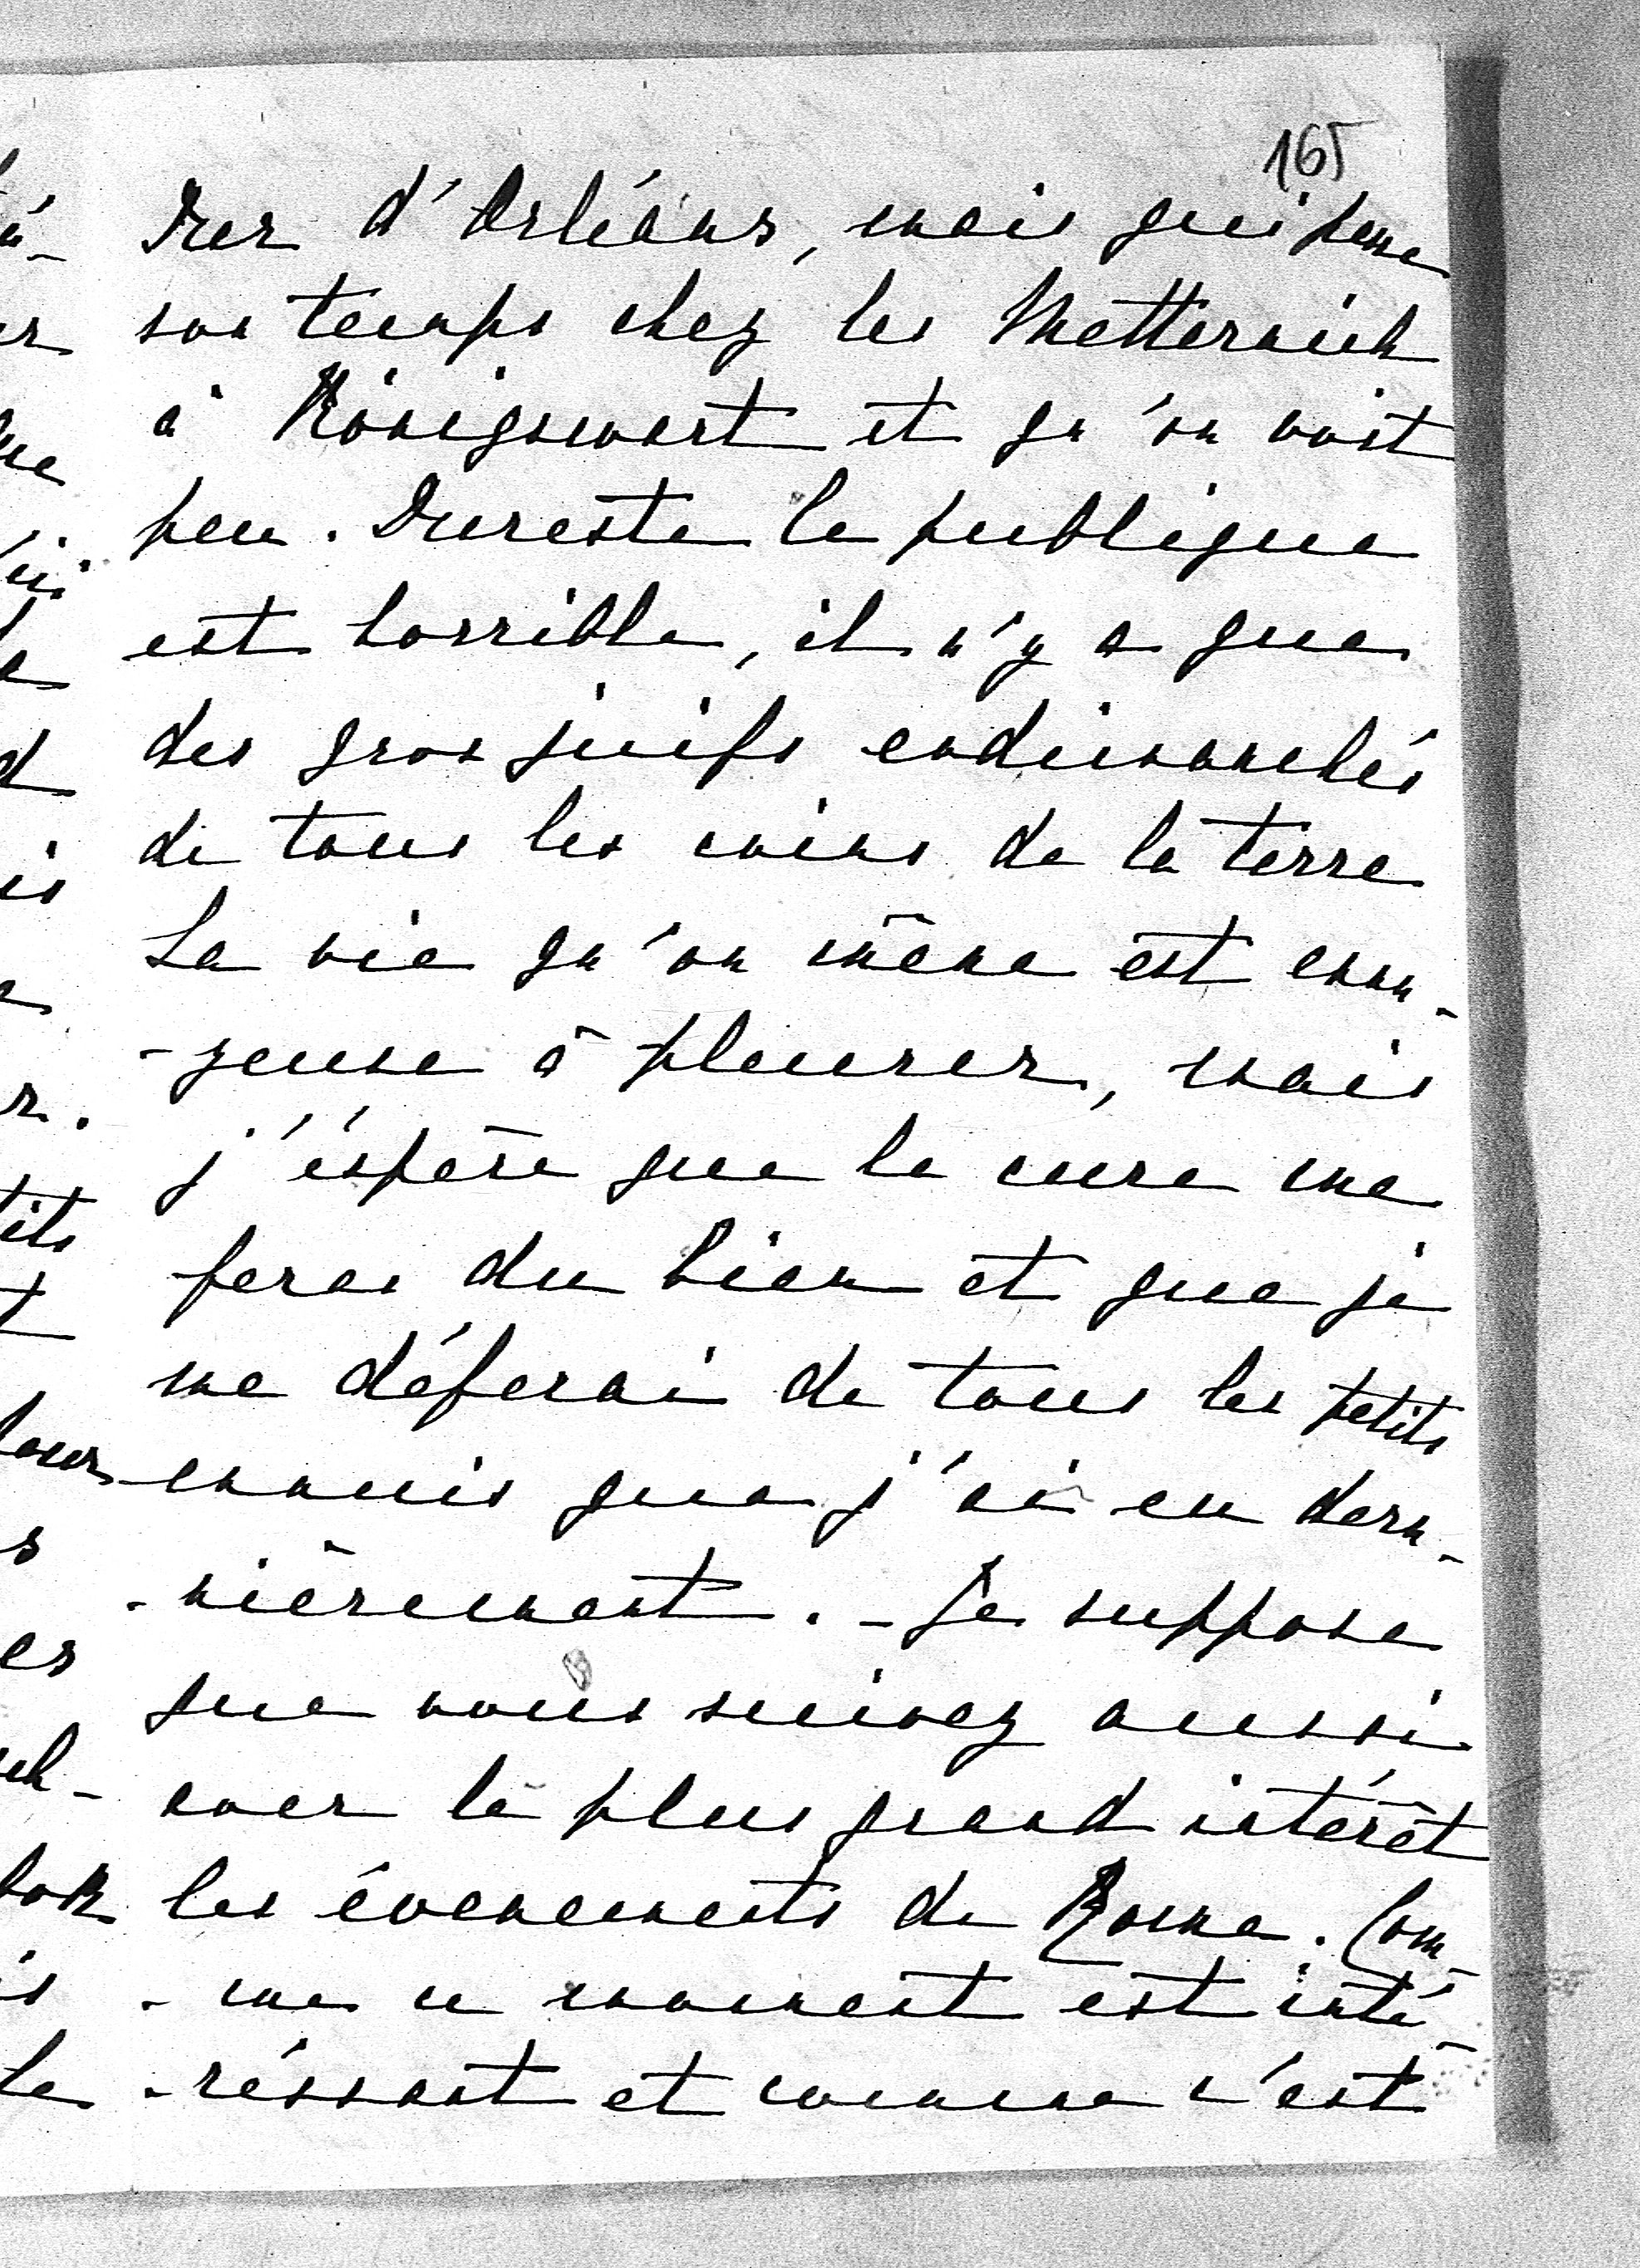 165
d'Orléans, mais qui passe
son temps chez les Metternich
à Königswart et qu'on voit
peu. Dureste le publique
est horrible, il n'y a que
des gros juifs endimanchés
de tous les coins de la terre
La vie qu'on mène est ennu-
-yeuse à pleurer, mais
j'éspère que la cure me
feras du bien et que je
me déferai de tous les petits
ennuis que j'ai eu dern-
-nièrement. - Je suppose
que vous suivez aussi
avec le plus grand intérêt
les évenements de Rome. Com-
-me ce moment est inté-
-réssant et comme c'est